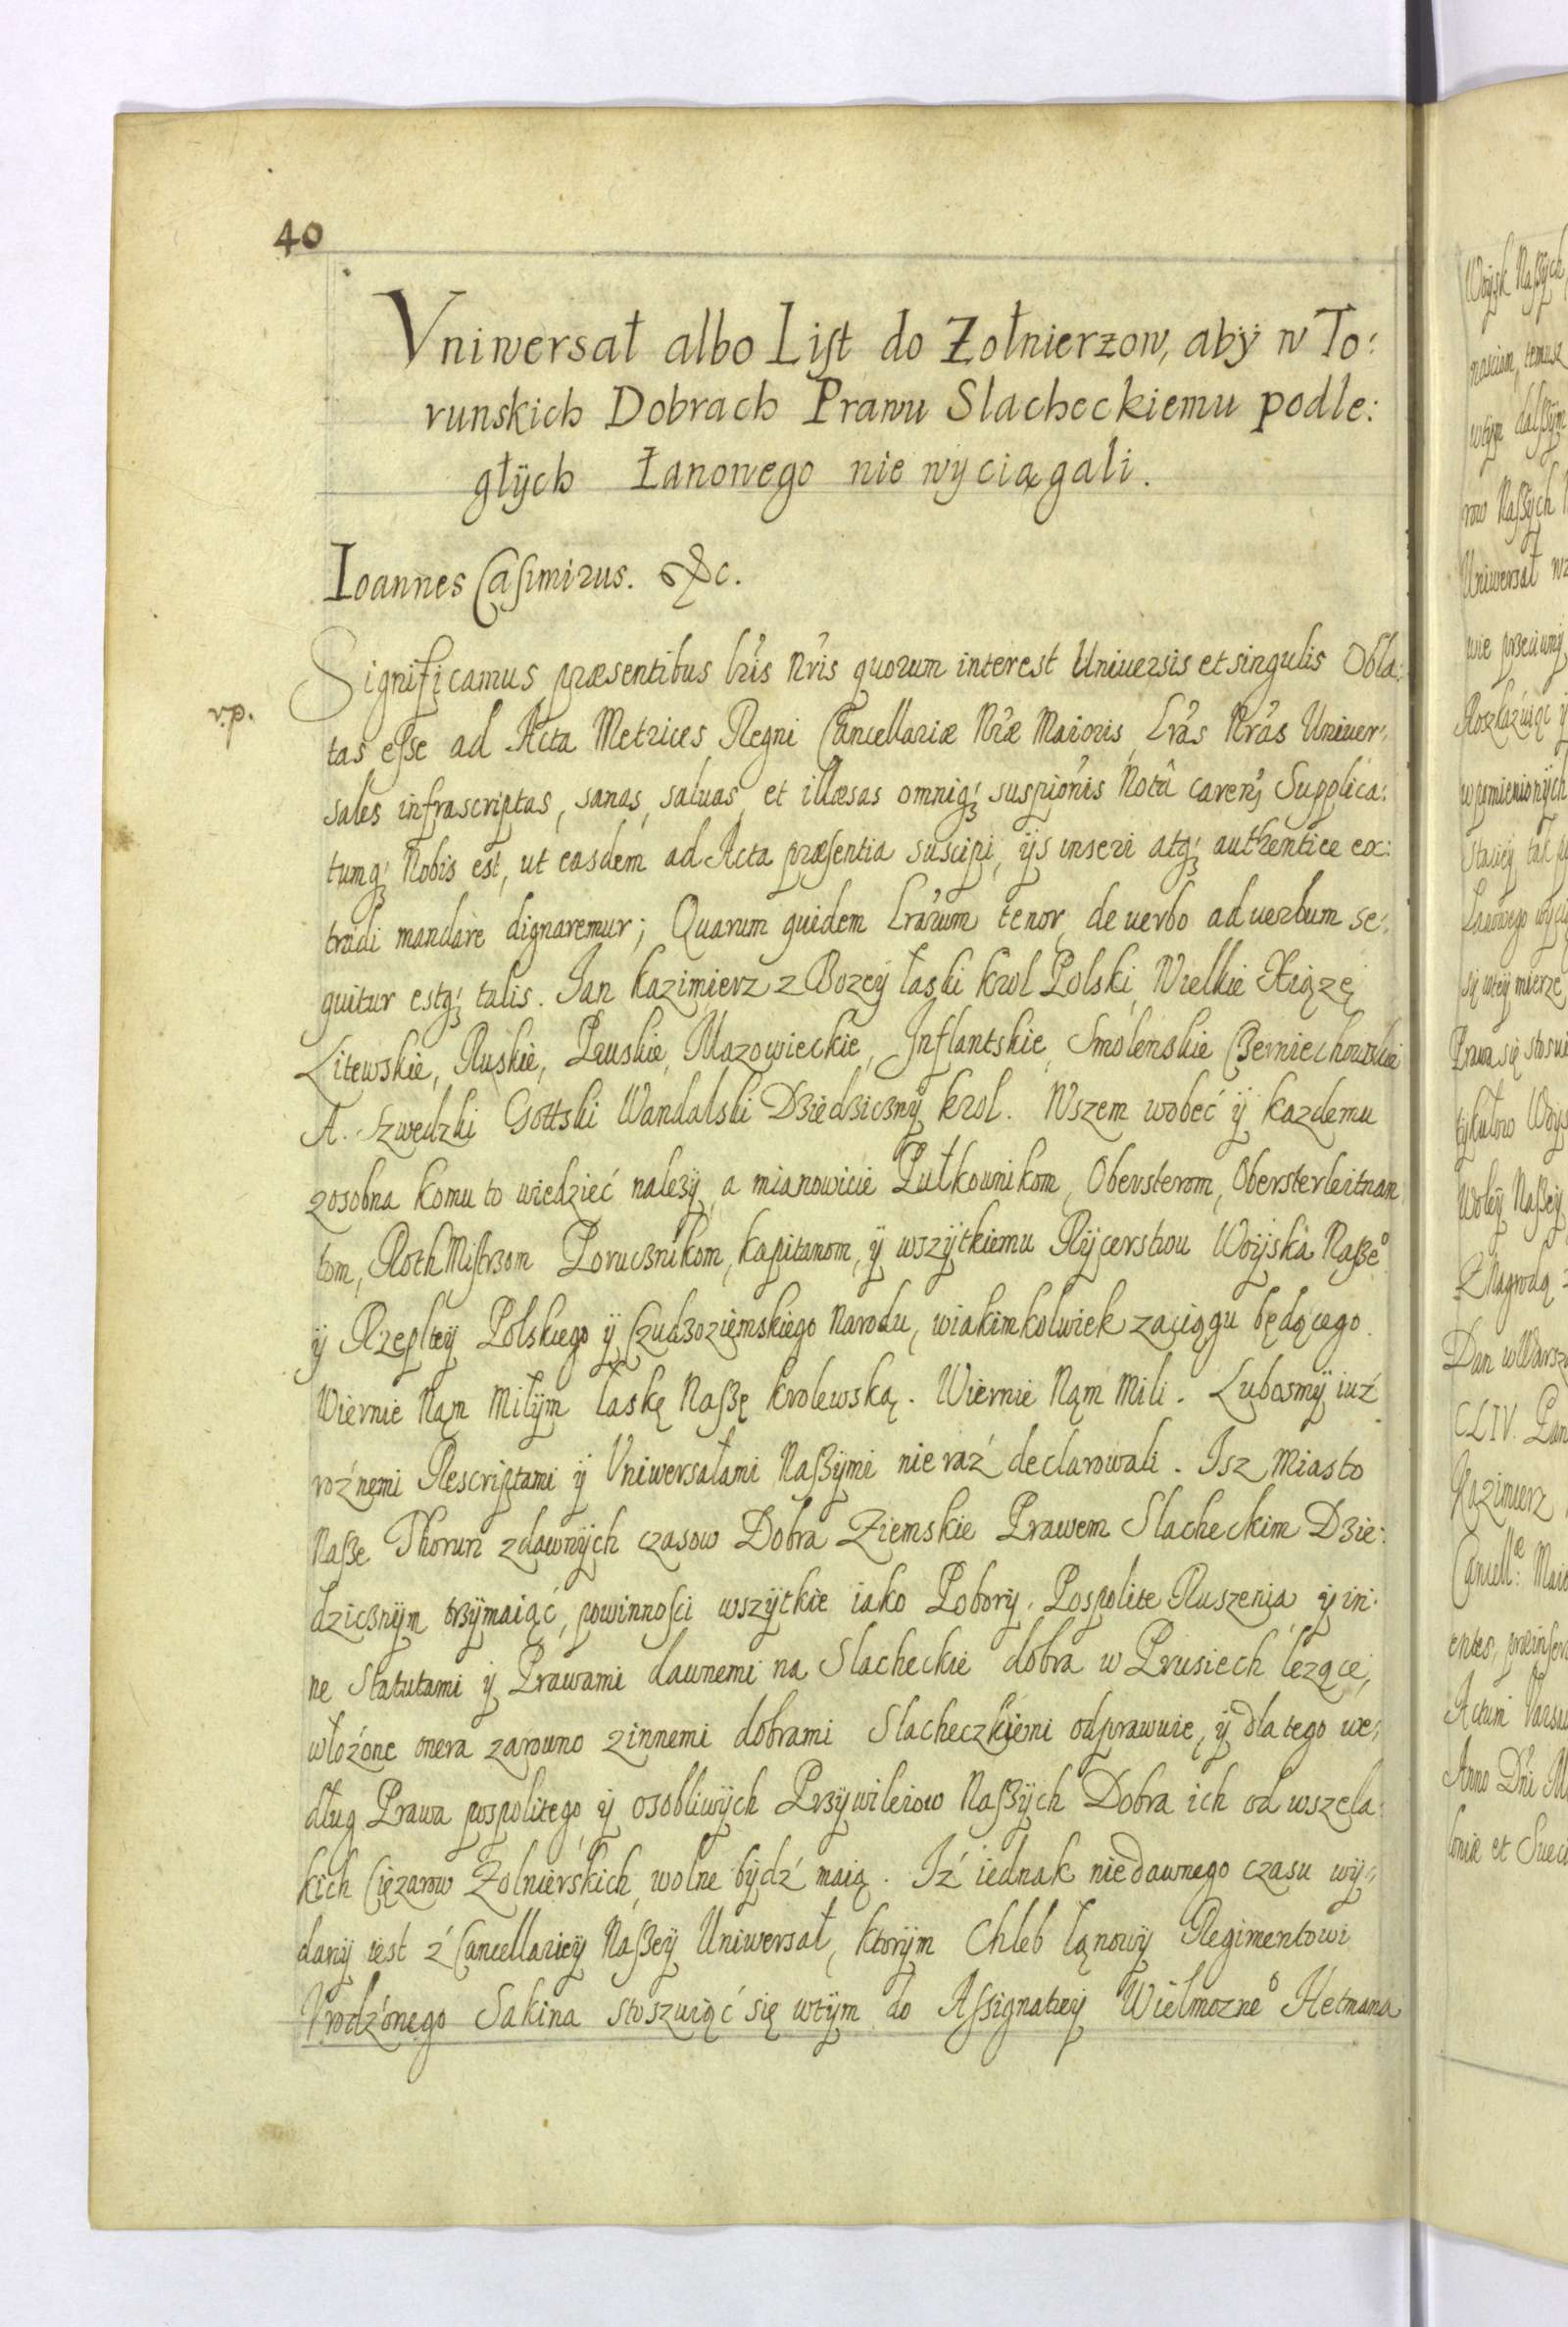 40
Vniwersał albo List do Zołnierzow, aby w To:
runskich Dobrach Prawu Slacheckiemu podle:
głÿch Łanowego nie wyciągali.
Ioannes Casimirus. &c.
Significamus præsentibus lr̃is Nr̃is quorum interest Universis et singulis Obla:
v.p.
tas esse ad Acta Metrices Regni Cancellariæ Nr̃æ Maioris Lr̃as Nr̃as Univer:
sales infrascriptas, sanas, saluas, et illæsas omniq; suspiõnis Notâ caren; Supplica:
tumq; Nobis est, ut easdem ad Acta præsentia suscipi, ÿs inseri atq; authentice ex:
tradi mandare dignaremur; Quarum quidem Lr̃arum tenor de verbo ad verbum se:
quitur estq; talis. Jan Kazimierz z Bozeÿ łaski Krol Polski, Wielkie Xiązę
Litewskie, Ruskie, Pruskie, Mazowieckie, Jnflantskie, Smolenskie Czerniechowskie
A. Szwedzki Gottski Wandalski Dziedziczny Krol. Wszem wobec ÿ kazdemu
zosobna komu to wiedzieć nalezÿ, a mianowicie Pułkownikom, Obersterom, Obersterleitnan
tom, RothMistrzom Porucznikom, Kapitanom, ÿ wszÿtkiemu Rÿcerstwu Woÿska Naßeᵒ
ÿ Rzepltey Polskiego ÿ Czudzoziemskiego Narodu, wiakimkolwiek zaciągu będącego.
Wiernie Nam Miłÿm łaskę Naßę Krolewską. Wiernie Nąm Mili. Lubosmÿ iuź
roźnemi Rescriptami ÿ Vniwersałami Naßÿmi nie raź declarowali. Jsz Miasto
Naße Thorun zdawnÿch czasow Dobra Ziemskie Prawem Slacheckim Dzie:
dzicznÿm trzÿmaiąć, powinnosci wszÿtkie iako Pobory, Pospolite Ruszenia ÿ in:
ne Statutami ÿ Prawami dawnemi na Slacheckie dobra w Prusiech lezące,
włoźone onera zarowno zinnemi dobrami Slacheczkiemi odprawuie, ÿ dla tego we:
dług Prawa pospolitego ÿ osobliwÿch Przÿwileiow Naßÿch Dobra ich od wszela:
kich Cięzarow Zolnierskich, wolne bÿdź maią. Iź iednak niedawnego czasu wÿ:
danÿ iest ź Cancellarieÿ Naßeÿ Uniwersał, ktorÿm Chleb łąnowÿ Regimentowi
Vrodzonego Sakina stoszuiąć się wtÿm do Assignatieÿ Wielmozneᵒ Hetmana